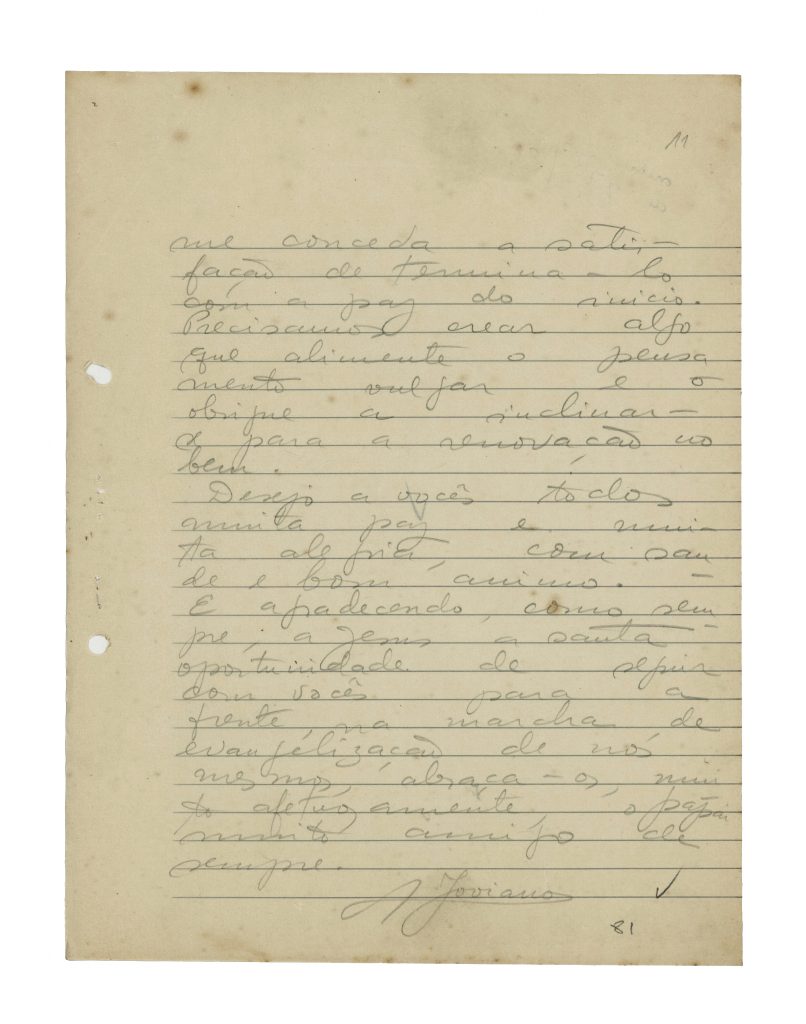 11
me conceda a satis-
fação de termina-lo
com a paz do inicio.
Precisamos crear algo
que alimente o pensa
mento vulgar e o
obrigue a inclinar-
se para a renovação no
bem.
Desejo a vocês todos
muita paz e mui-
ta alegria, com sau
de e bom animo. -
E agradecendo, como sem-
pre, a Jesus a santa
oportunidade de seguir
com vocês para a
frente, na marcha de
evangelização de nós
mesmos, abraça-os, mui
to afetuosamente, o papai
muito amigo de
sempre.
A Joviano
81